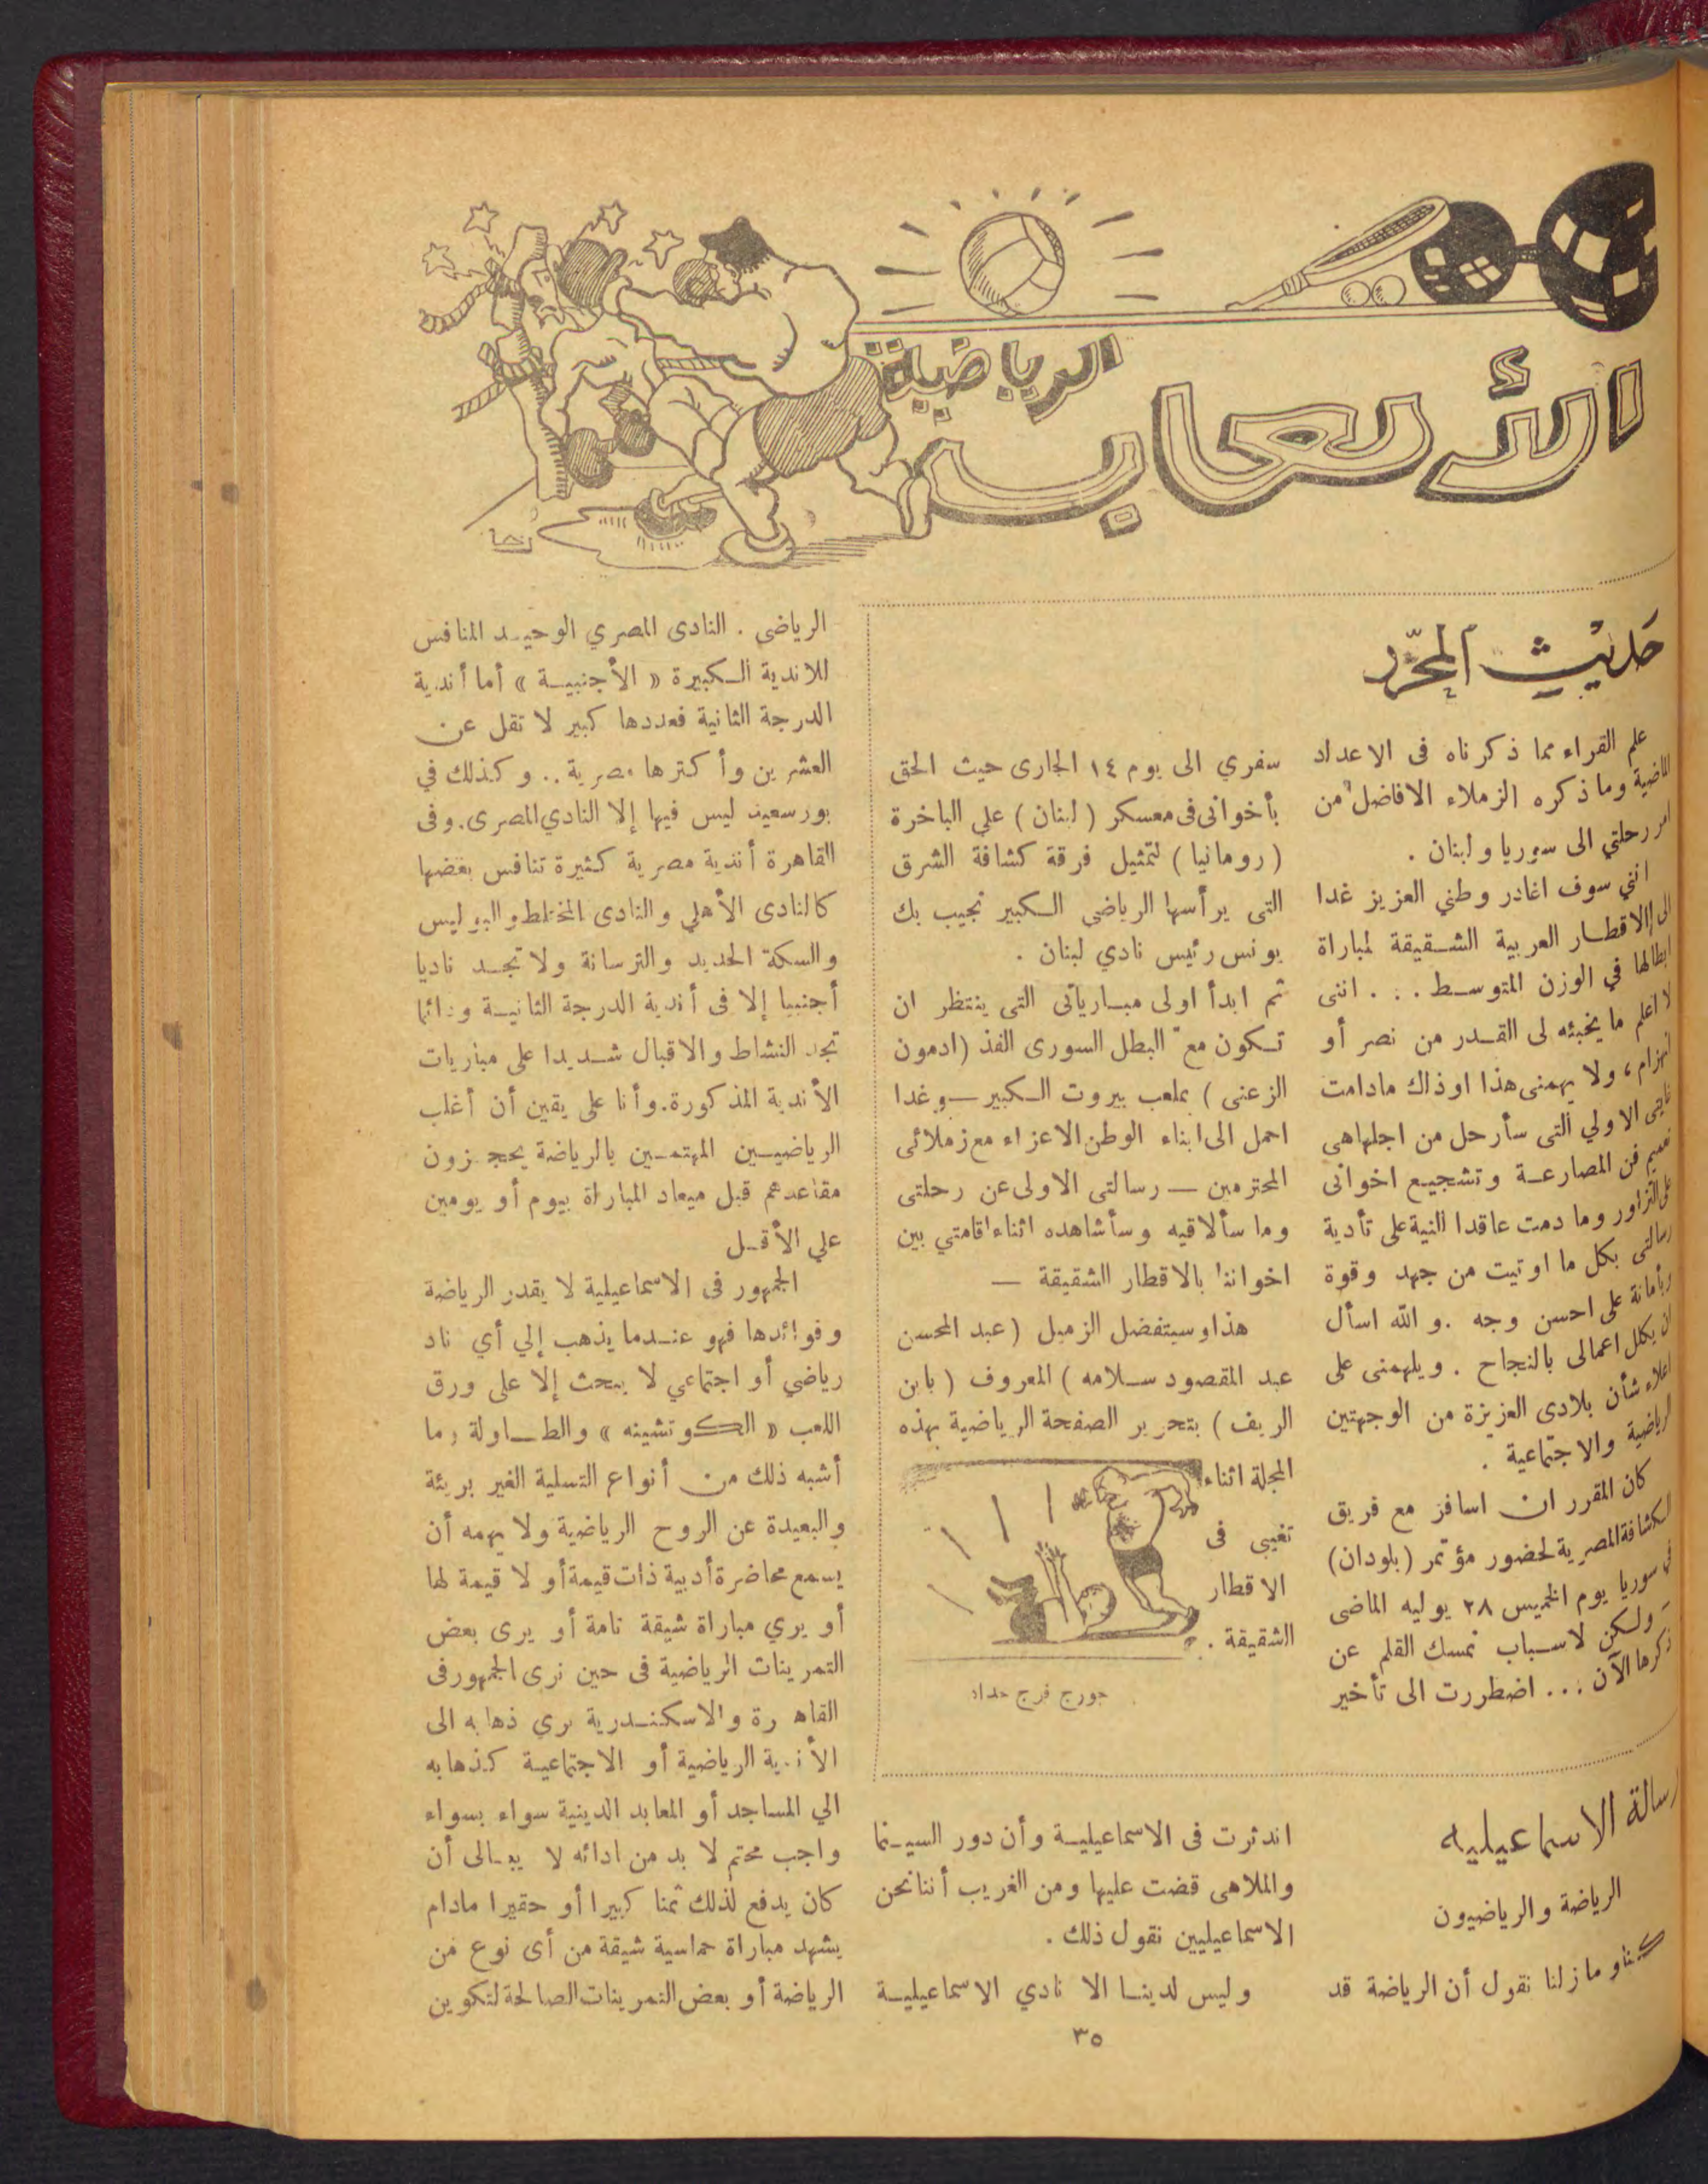 الألعاب
الرياضية
حديث المحرر
علم القراء مما ذكرناه فى الاعداد
الماضية وما ذكره الزملاء الافاضل من
امر رحلتي الى سوريا ولبنان .
انني سوف اغادر وطني العزيز غدا
الى الاقطار العربية الشقيقة لمباراة
ابطالها في الوزن المتوسط . . . اننى
لا اعلم ما يخبئه لى القدر من نصر أو
انهزام ، ولا يهمنى هذا او ذاك مادامت
الاولي التى سأرحل من اجلها هى
تعميم فن المصارعة وتشجيع اخوانى
على التزاور وما دمت عاقدا النية على تأدية
رسالتى بكل ما اوتيت من جهد وقوة
وبأمانة على احسن وجه . والله اسأل
ان يكلل اعمالى بالنجاح . ويلهمنى على
اعلاء شأن بلادى العزيزة من الوجهتين
الرياضية والاجتماعية .
كان المقرر ان اسافر مع فريق
الكشافة المصرية لحضور مؤتمر (بلودان)
في سوريا يوم الخميس ٢٨ يوليه الماضى
ولكن لاسباب نمسك القلم عن
ذكرها الآن . . . اضطررت الى تأخير
سفري الى يوم ١٤ الجارى حيث الحق
بأخوانى فى معسكر ( لبنان ) علي الباخرة
( رومانيا ) لتمثيل فرقة كشافة الشرق
التى يرأسها الرياضي الكبير نجيب بك
يونس رئيس نادي لبنان .
ثم ابدأ اولى مبارياتى التى ينتظر ان
تكون مع البطل السورى الفذ (ادمون
الزعنى ) بملعب بيروت الكبير — وغدا
احمل الى ابناء الوطن الاعزاء مع زملائى
المحترمين — رسالتى الاولى عن رحلتى
وما سألاقيه وسأشاهده اثناء اقامتي بين
اخواننا بالاقطار الشقيقة —
هذا وسيتفضل الزميل (عبد المحسن
عبد المقصود سلامه ) المعروف ( بابن
الريف ) بتحرير الصفحة الرياضية بهذه
المجلة اثناء
تغيبى فى
الاقطار
الشقيقة .
جورج فرج حداد
رسالة الاسماعيليه
الرياضة والرياضيون
كنا وما زلنا نقول أن الرياضة قد
اندثرت فى الاسماعيلية وأن دور السينما
والملاهى قضت عليها ومن الغريب أننا نحن
الاسماعيليين نقول ذلك .
وليس لدينا الا نادي الاسماعيلية
الرياضى . النادى المصري الوحيد المنافس
للاندية الكبيرة « الأجنبية » أما أندية
الدرجة الثانية فعددها كبير لا تقل عن
العشرين وأكثرها مصرية .. وكذلك في
بورسعيد ليس فيها إلا النادي المصرى . وفى
القاهرة أندية مصرية كثيرة تنافس بعضها
كالنادى الأهلي والنادى المختلط والبوليس
والسكة الحديد والترسانة ولا تجد ناديا
أجنبيا إلا فى أندية الدرجة الثانية ودائما
تجد النشاط والاقبال شديدا على مباريات
الأندية المذكورة . وأنا على يقين أن أغلب
الرياضيين المهتمين بالرياضة يحجزون
مقاعدهم قبل ميعاد المباراة بيوم أو يومين
علي الأقل
الجمهور فى الاسماعيلية لا يقدر الرياضة
وفوائدها فهو عندما يذهب إلي أي ناد
رياضي أو اجتماعي لا يبحث إلا على ورق
اللعب « الكوتشينه » والطاولة وما
أشبه ذلك من أنواع التسلية الغير بريئة
والبعيدة عن الروح الرياضية ولا يهمه أن
يسمع محاضرة أدبية ذات قيمة أو لا قيمة لها
أو يري مباراة شيقة تامة أو يرى بعض
التمرينات الرياضية فى حين نرى الجمهور فى
القاهرة والاسكندرية يري ذهابه الى
الأندية الرياضية أو الاجتماعية كذهابه
الي المساجد أو المعابد الدينية سواء بسواء
واجب محتم لا بد من ادائه لا يبالى أن
كان يدفع لذلك ثمنا كبيرا أو حقيرا مادام
يشهد مباراة حماسية شيقة من أى نوع من
الرياضة أو بعض التمرينات الصالحة لتكوين
٣٥